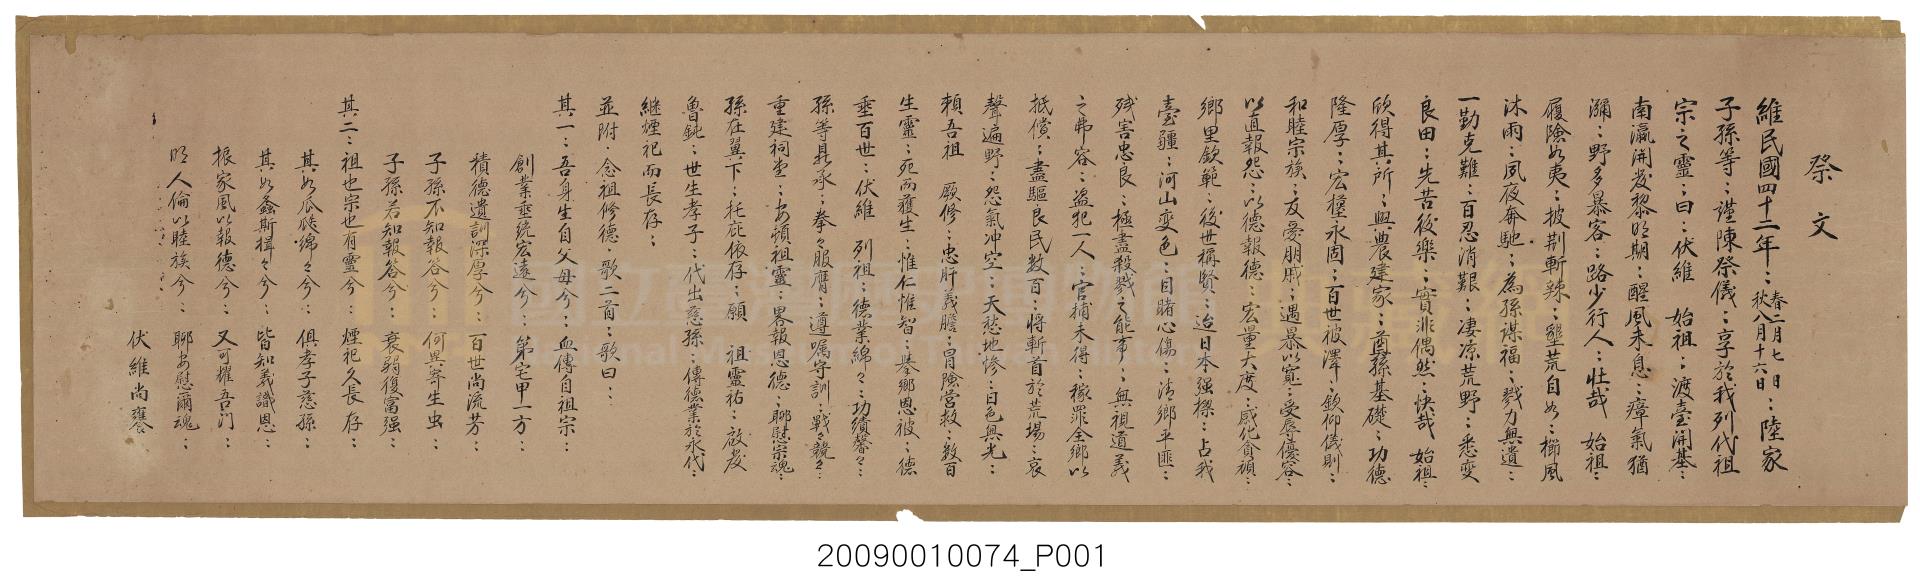 祭文
維民國四十二年：春二月七日秋八月十六日：陸家
子孫等：謹陳祭儀：享於我列代祖
宗之靈：曰：伏維 始祖：渡臺開基：
南瀛開發黎明期：醒風未息：瘴氣猶
瀰：野多暴客：路少行人：壯哉 始祖：
履險如夷：披荆斬辣：墾荒自如：櫛風
沐雨：夙夜奔馳：為孫謀福：戮力無遺：
一勤克難：百忍消艱：凄凉荒野：悉变
良田：先苦後樂：實非偶然：快哉 始祖：
欣得其所：興農建家：酋孫基礎：功德
隆厚：宏橦永固：百世被澤：欽仰儀則：
和睦宗族：友愛朋戚：遇暴以寬：受辱優容：
以直報怨：以德報德：宏量大度：感化貪頑：
鄉里欽範：後世稱賢：迨日本强搩：占我
臺疆：河山变色：目睹心傷：清鄉平匪：
残害忠良：極盡殺戮之能事：無視道義
之弗容：盗犯一人：官捕未得：稼罪全鄉以
抵償：盡驅良民数百：将斬首於荒場：哀
聲遍野：怨氣冲空：天愁地惨：日色無光：
賴吾祖 厥修：忠肝義膽：冒險营救：数百
生靈：死而獲生：惟仁惟智：举鄉恩被：德
垂百世：伏維 列祖：德業綿々：功績馨々：
孫等具承：拳々服膺：遵嘱守訓：戰々競々：
重建祠堂：安頓祖靈：畧報恩德：聊慰宗魂：
孫在翼下：托庇依存：願 祖靈祐：啟发
魯鈍：世生孝子：代出慈孫：傳德業於永代：
継煙祀而長存：
並附：念祖修德：歌二首：歌曰：
其一：吾身生自父母兮：血傳自祖宗：
創業垂統宏遠兮：第宅甲一方：
積德遺訓深厚兮：百世尚流芳：
子孫不知報答兮：何異寄生虫：
子孫若知報答兮：衰弱復富强：
其二：祖也宗也有靈兮 煙祀久長存：
其如瓜瓞綿々兮：俱孝子慈孫：
其如螽斯揖々兮：皆知義識恩：
振家風以報德兮：又可耀吾门：
明人倫以睦族兮：聊安慰爾魂：
伏維尚饗
國立臺灣歷史博物館 典藏網
National Museum of Taiwan History
20090010074_P001